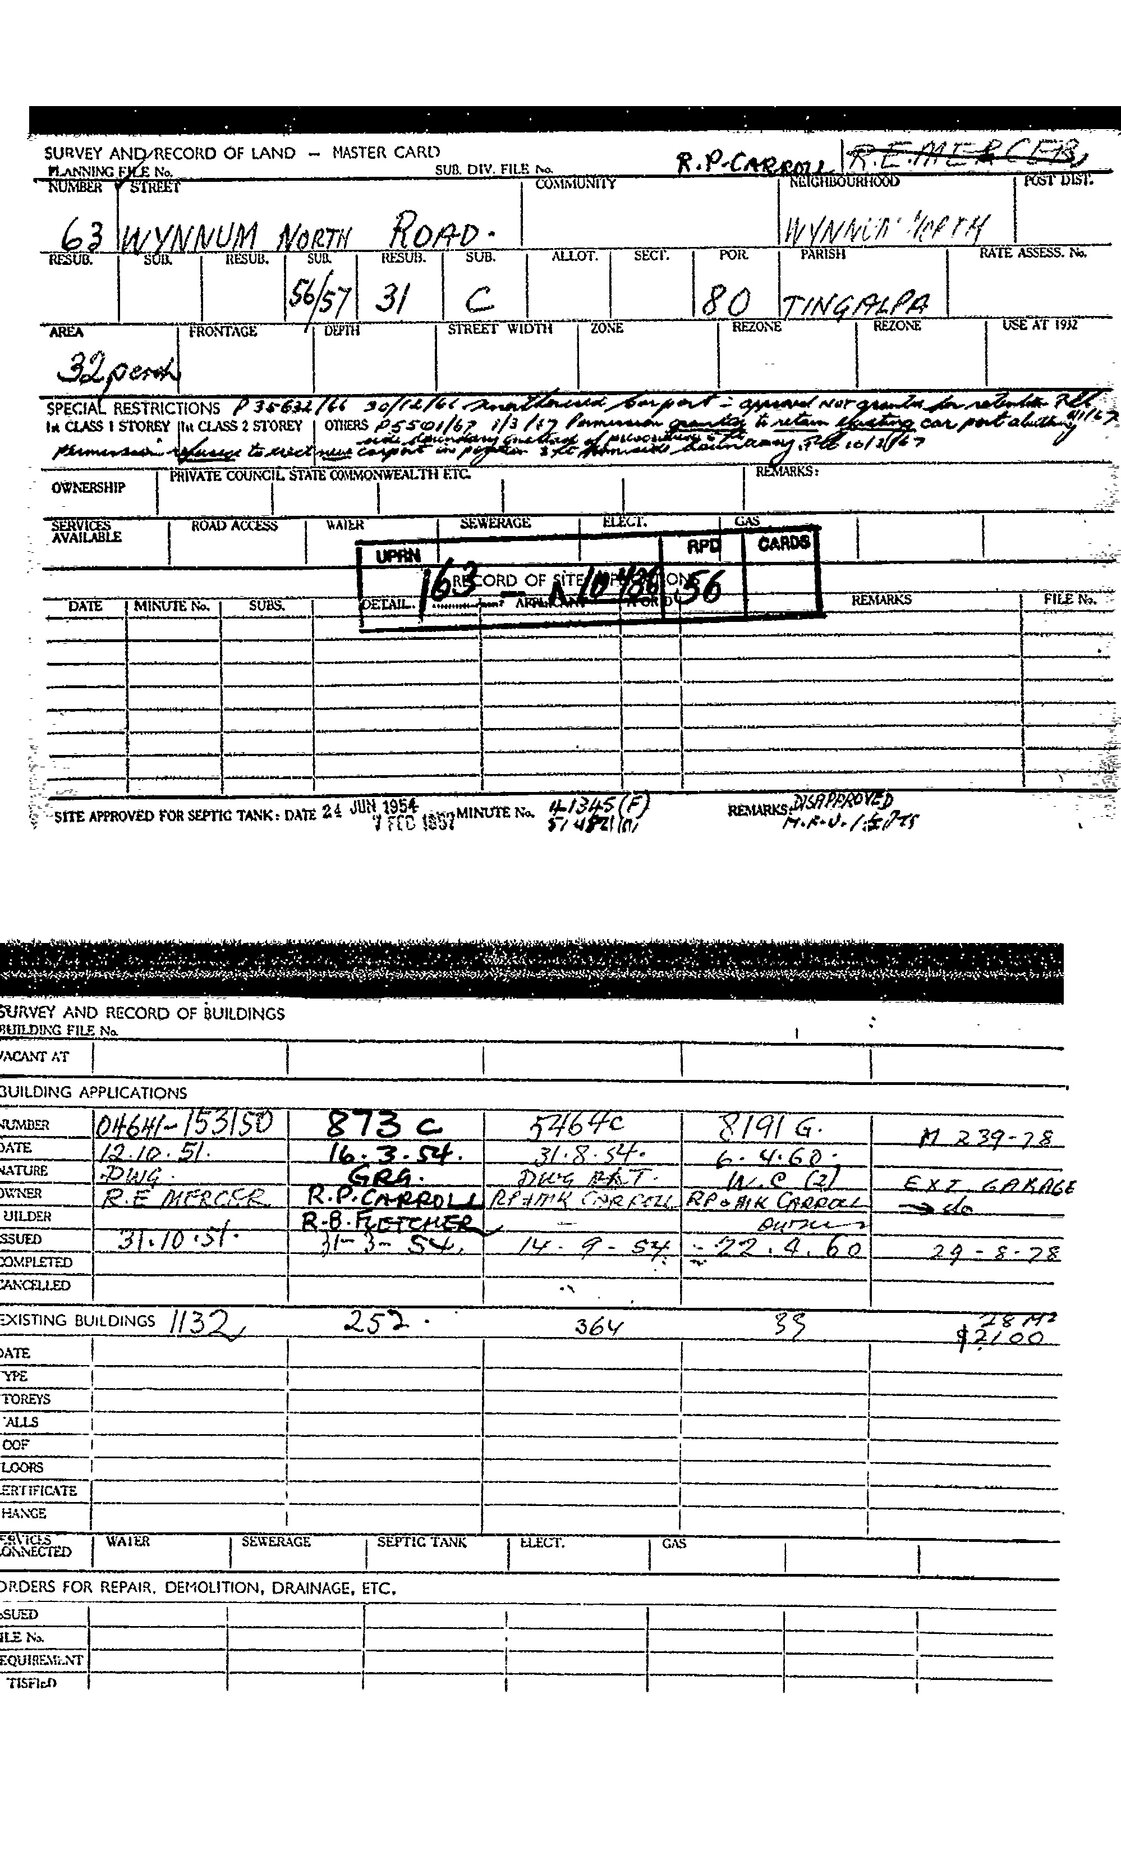 SURVEY AND RECORD OF LAND – MASTER CARD
R.P. CARROLL R.E. MERCER
PLANNING FILE No. SUB. DIV. FILE No.
NUMBER STREET COMMUNITY NEIGHBOURHOOD POST DIST.
63 WYNNUM NORTH ROAD. WYNNUM NORTH
RESUB. SUB. RESUB. SUB. RESUB. SUB. ALLOT. SECT. POR. PARISH RATE ASSESS. No.
56/57 31 C 80 TINGALPA
AREA FRONTAGE DEPTH STREET WIDTH ZONE REZONE REZONE USE AT 1932
32 perch
SPECIAL RESTRICTIONS P 35632/66 30/12/66 Unauthorised Carport – approval NOT granted for retention
1st CLASS 1 STOREY 1st CLASS 2 STOREY OTHERS P5501/67 1/3/67 Permission granted to retain existing car port abutting
side boundary
Permission refused to erect new carport in position 3 ft from side boundary. 10/3/67
OWNERSHIP PRIVATE COUNCIL STATE COMMONWEALTH ETC. REMARKS:
SERVICES AVAILABLE ROAD ACCESS WATER SEWERAGE ELECT. GAS
UPRN RPD CARDS
RECORD OF SITE
163 – A 10486 56
DATE MINUTE No. SUBS. DETAIL. APPLICANT REMARKS FILE No.
SITE APPROVED FOR SEPTIC TANK: DATE 24 JUN 1954 MINUTE No. 41345(F) REMARKS: DISAPPROVED
7 FEB 1957
SURVEY AND RECORD OF BUILDINGS
BUILDING FILE No.
VACANT AT
BUILDING APPLICATIONS
NUMBER 04641-153150 873 C 5464C 8191 G. M 239-78
DATE 12.10.51. 16.3.54. 31.8.54. 6.4.60.
NATURE DWG. GRG. DWG W.C (2) EXT GARAGE
OWNER R.E MERCER R.P. CARROLL RP & MK CARROLL RP & MK CARROLL → do
UILDER R.B. FLETCHER – owner
SSUED 31.10.51. 31-3-54. 14-9-54 22.4.60 29-8-78
COMPLETED
CANCELLED
EXISTING BUILDINGS 1132 252. 364 39 28 M²
$2100
DATE
YPE
TOREYS
ALLS
OOF
LOORS
ERTIFICATE
HANGE
ERVICES CONNECTED WATER SEWERAGE SEPTIC TANK ELECT. GAS
ORDERS FOR REPAIR, DEMOLITION, DRAINAGE, ETC.
SSUED
ILE No.
EQUIREMENT
TISFIED